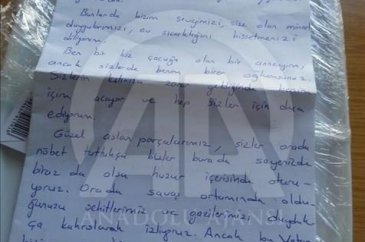 Bunlarda bizim sevgimizi, size olan minnet
duygularımızı, bu sıcaklığını hissetmenizi
diliyorum.
Ben bir kız çocuğu olan bir anneyim,
ancak sizlerde benim birer oğlumsunuz.
Sizlerin
içim acıyor ve hep sizler için dua
ediyorum.
Güzel aslan parçalarımız, sizler orada
nöbet tuttukça bizler burada sayenizde
biraz da olsa huzur içerisinde oturu-
yoruz. Orada savaş ortamında oldu-
ğunuzu şehitlerimizi gazilerimizi duydukça
kahrolarak izliyoruz. Ancak bu
AA
ANADOLU AJANSI